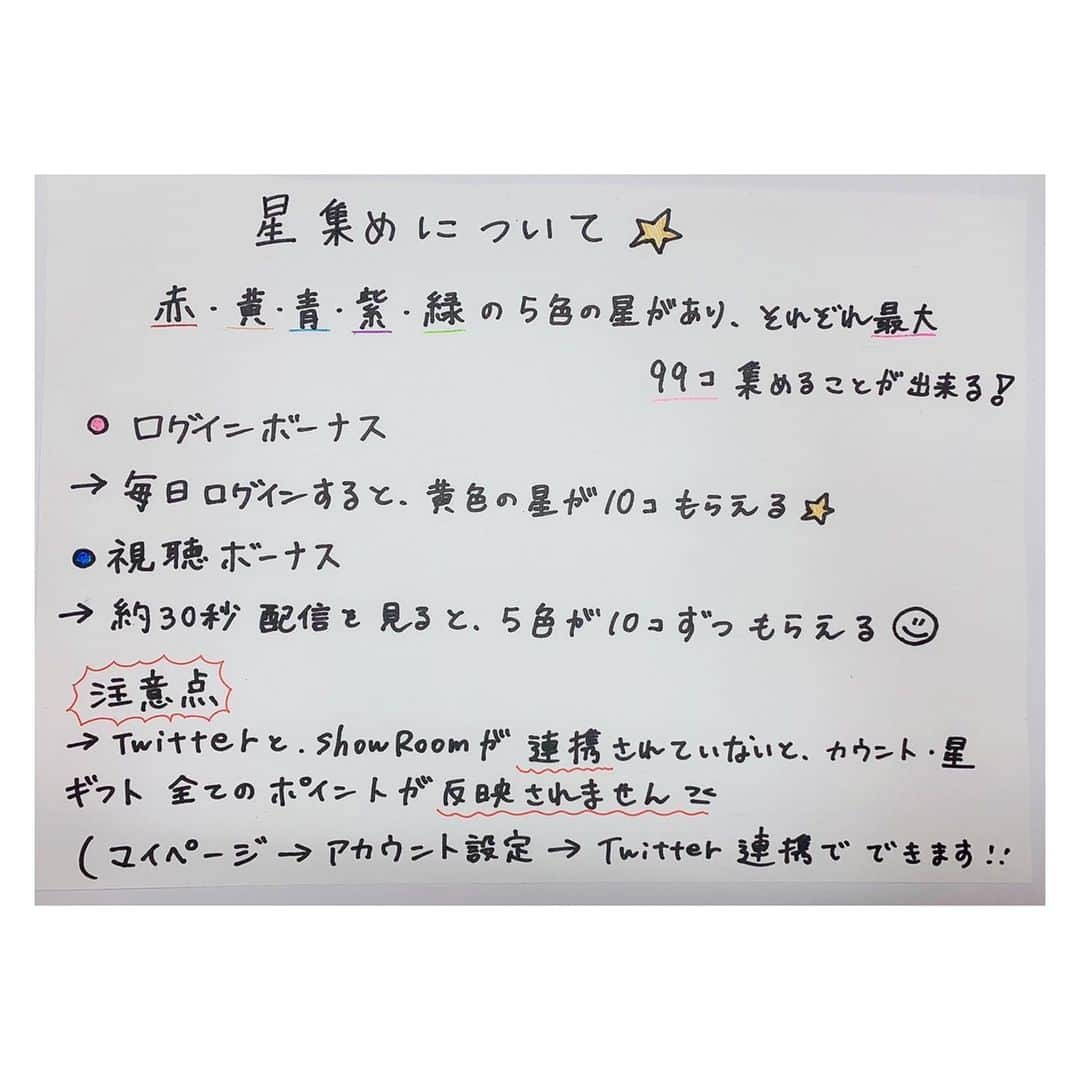 星集めについて
赤・黄・青・紫・緑の5色の星があり、それぞれ最大
99コ 集めることが出来る!
ログインボーナス
→ 毎日ログインすると、黄色の星が10コもらえる
視聴ボーナス
→ 約30秒 配信を見ると、5色が10コずつもらえる
注意点
→ Twitterと、ShowRoomが 連携されていないと、カウント・星
ギフト 全てのポイントが反映されません
(マイページ → アカウント設定 → Twitter 連携で できます!!